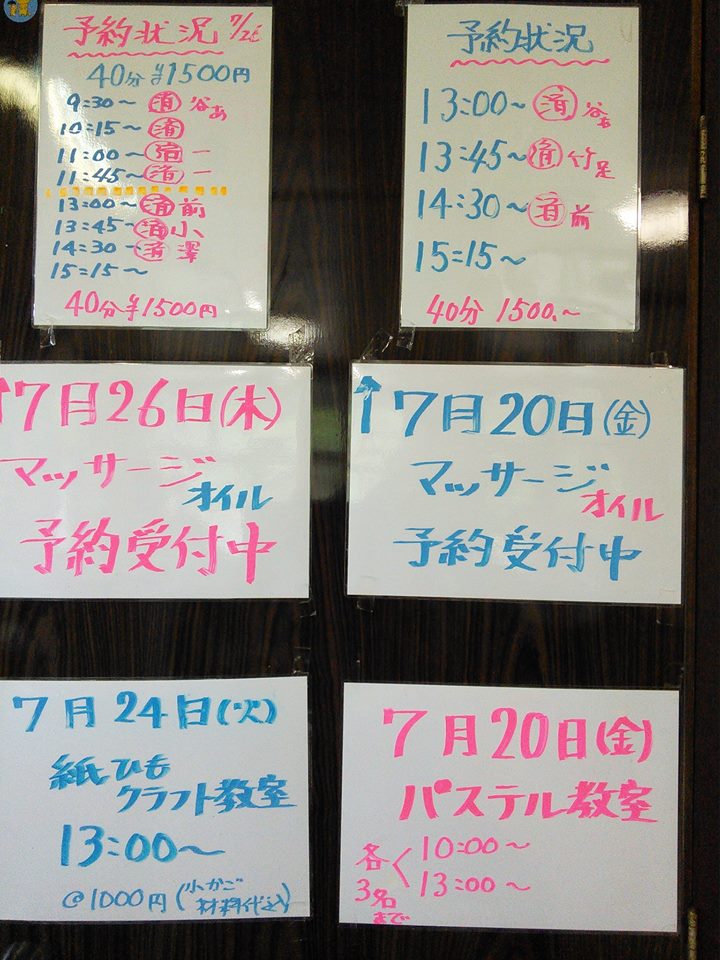 予約状況
40分 ¥1500円
9:30～ 済 谷あ
10:15～ 済
11:00～ 済 一
11:45～ 済 一
13:00～ 済 前
13:45～ 済 小
14:30～ 済 澤
15:15～
40分 ¥1500円
予約状況
13:00～ 済 谷あ
13:45～ 済 竹足
14:30～ 済 前
15:15～
40分 1500.～
↑7月26日(木)
マッサージ
オイル
予約受付中
↑7月20日(金)
マッサージ
オイル
予約受付中
7月24日(火)
紙ひも
クラフト教室
13:00～
@1000円(小かご
材料代込)
7月20日(金)
パステル教室
各 10:00～
3名 13:00～
まで